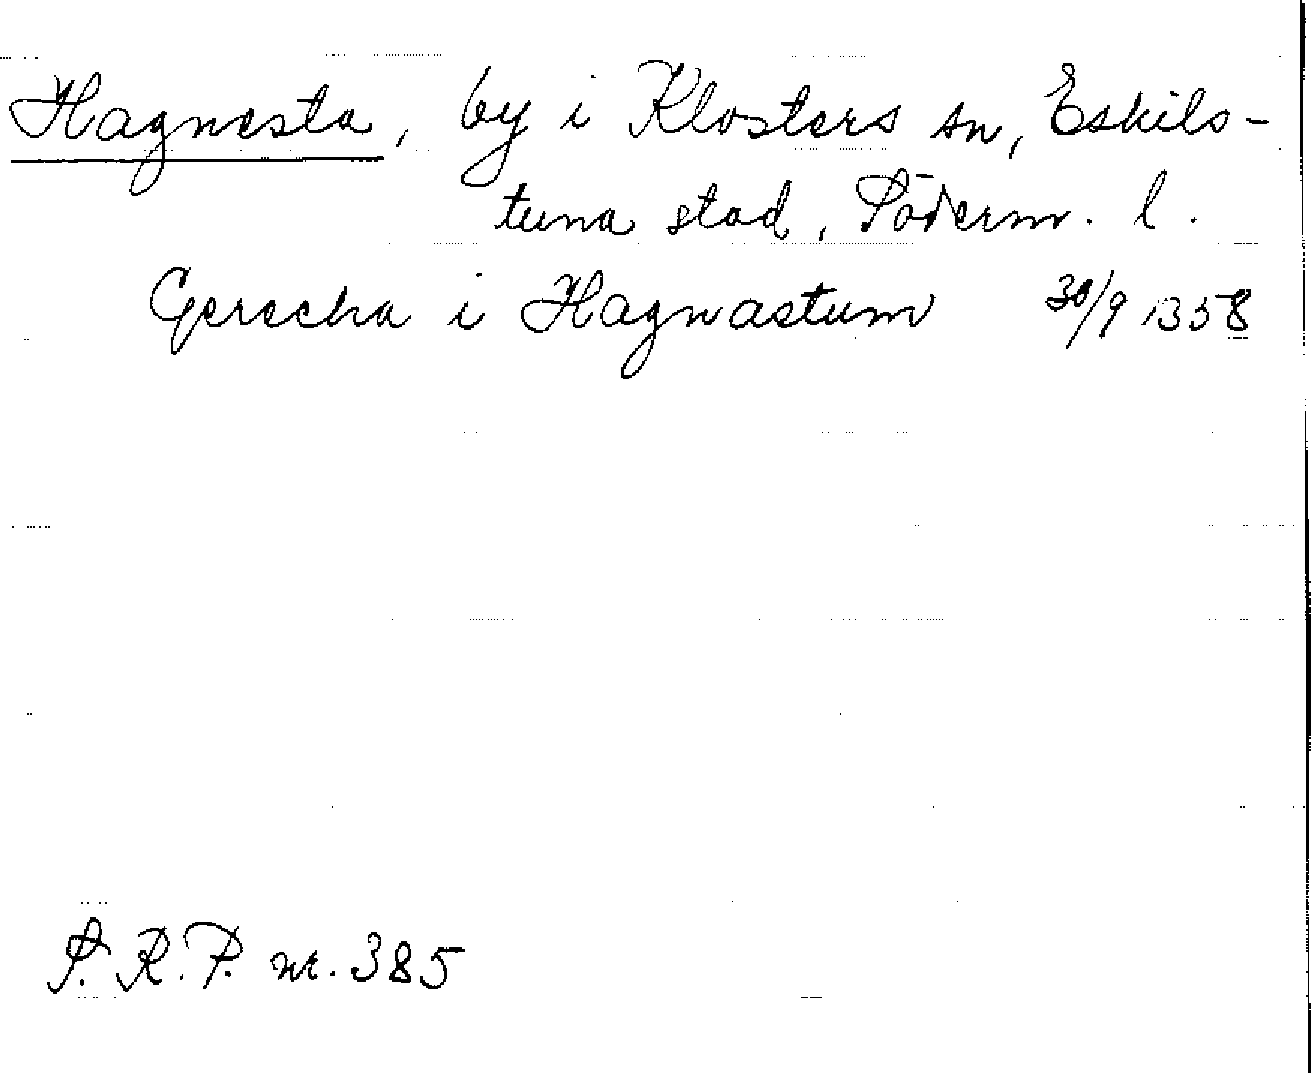 Hagnesta, by i Klosters sn, Eskils-
tuna stad, Söderm. l.
Gerecha i Hagnastum 30/9 1358
S.R.P. nr. 385